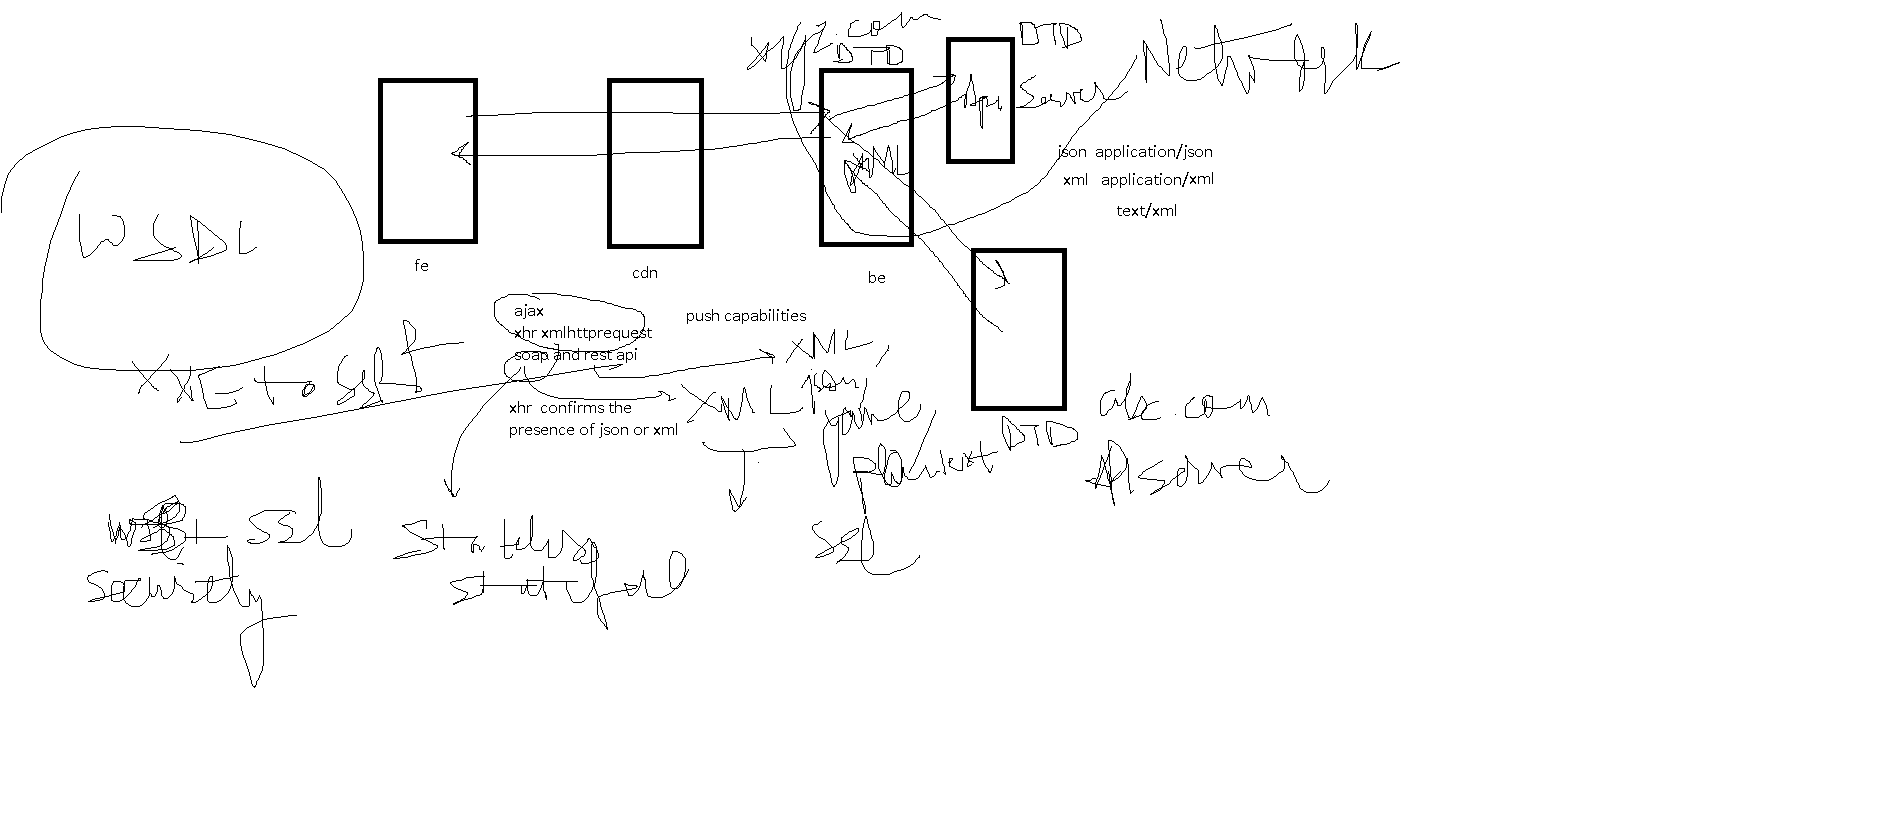 xyz.com
DTD
DTD
Network
Api Server
json application/json
xml application/xml
text/xml
XML
WSDL
fe
cdn
be
ajax
xhr xmlhttprequest
soap and rest api
push capabilities
XML,
json,
XXE to
xhr confirms the
presence of json or xml
XML
plaintext
DTD
abc.com
API server
ssl
security
stateful
ssl